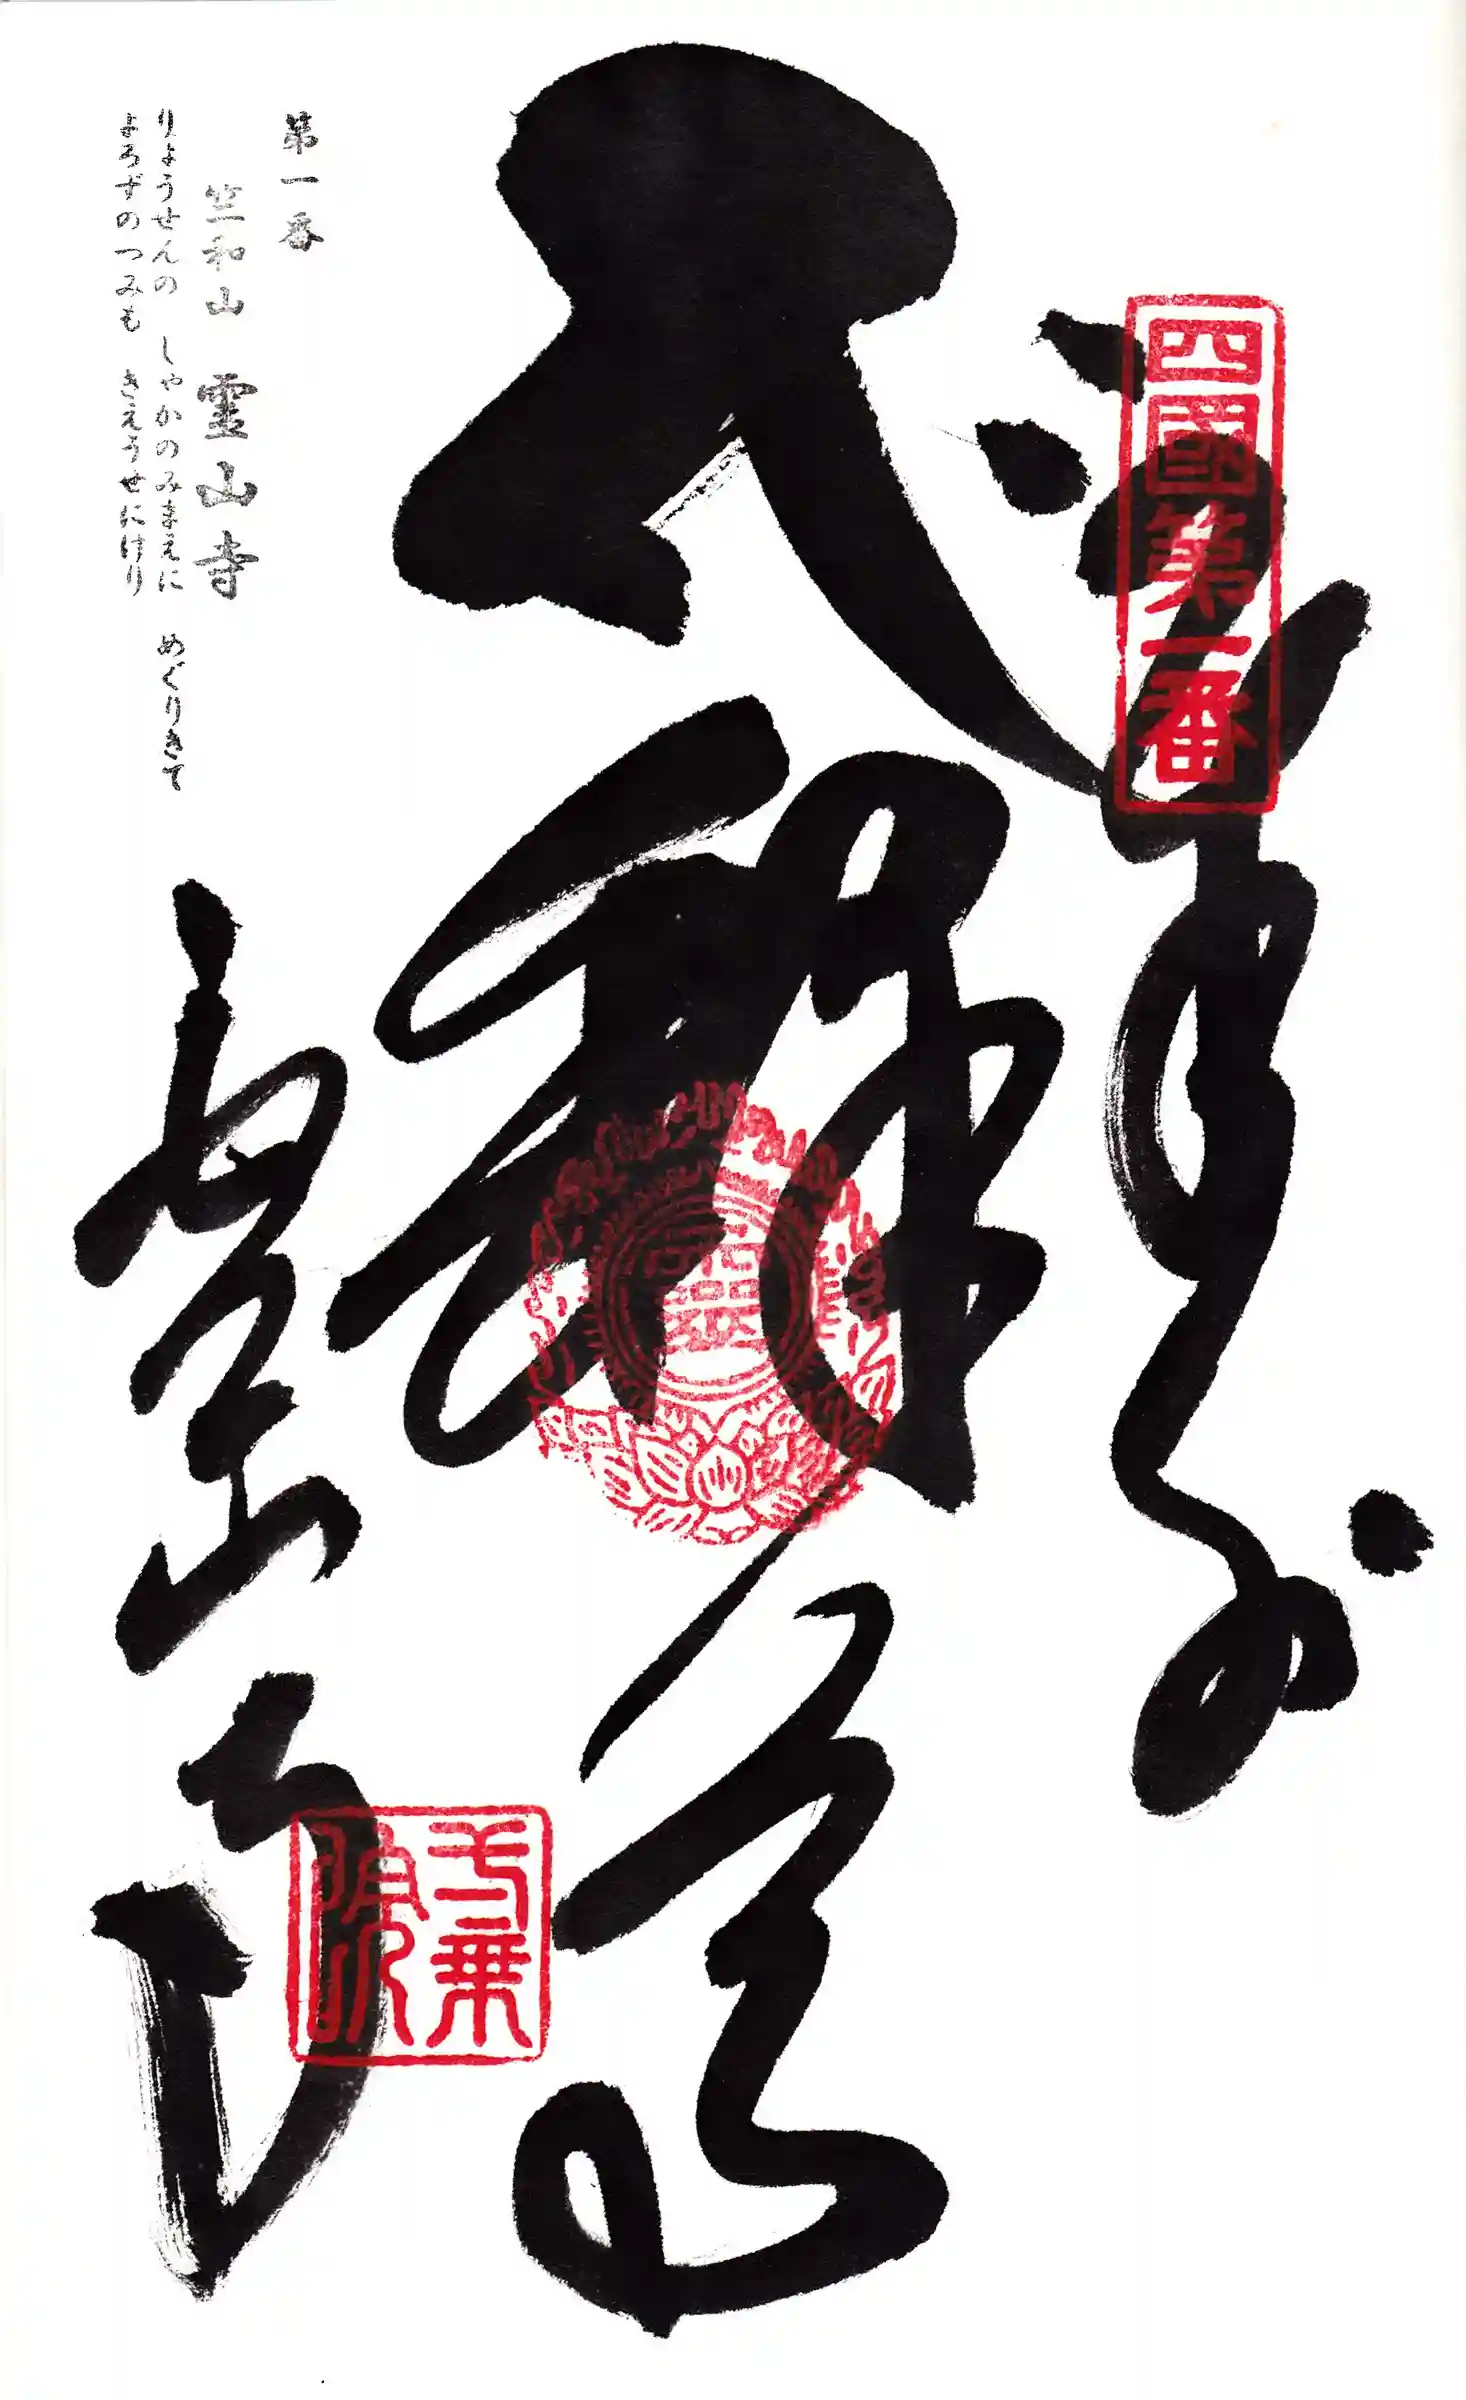 四國第一番
奉
釋迦如来
霊山寺
第一番
竺和山 霊山寺
りょうせんの しゃかのみまえに めぐりきて
よろずのつみも きえうせにけり